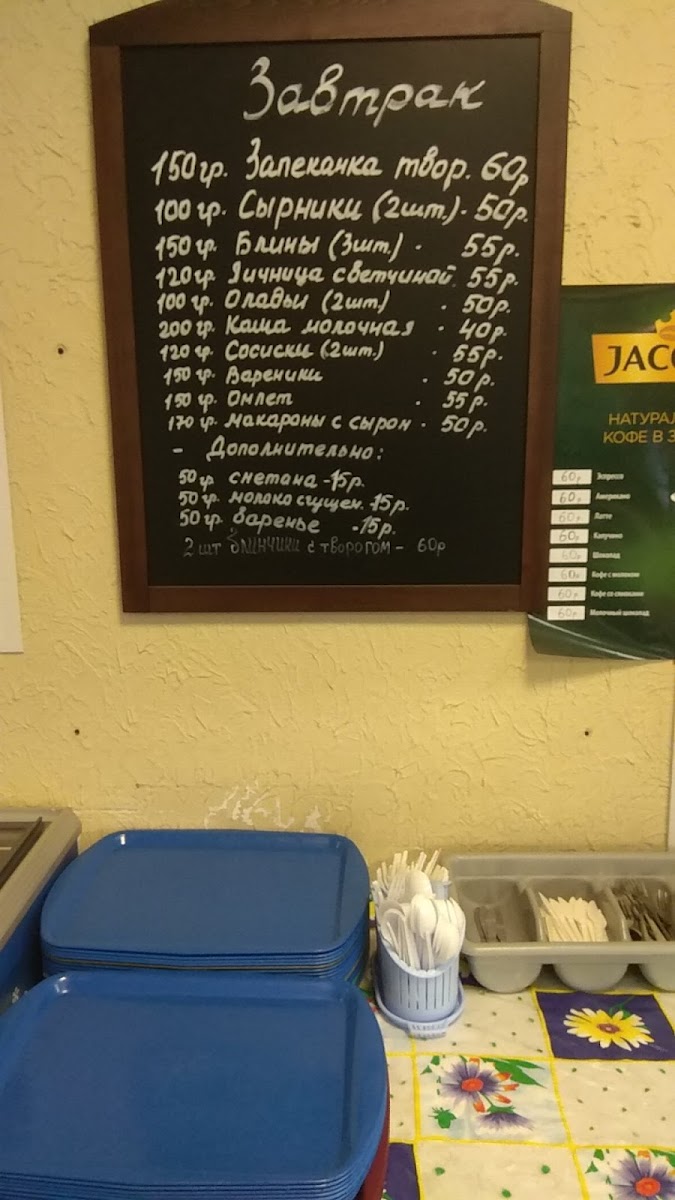 Завтрак
150гр. Запеканка твор. 60р
100 гр. Сырники (2шт.) - 50р.
150 гр. Блины (3шт.) - 55р.
120 гр. Яичница с ветчиной 55р.
100 гр. Оладьи (2шт) - 50р.
200 гр. Каша молочная - 40р.
120 гр. Сосиски (2шт.) - 55р.
150 гр. Вареники - 50р.
150 гр. Омлет - 55р.
170 гр. Макароны с сыром - 50р.
- Дополнительно:
50гр сметана - 15р.
50 гр. молоко сгущен. - 15р.
50 гр варенье - 15р.
2 шт блинчики с творогом - 60р
JAC
НАТУРАЛ
КОФЕ В З
60р Эспрессо
60р Американо
60р Латте
60р Капучино
60р Шоколад
60р Кофе с молоком
60р Кофе со сливками
60р Молочный шоколад